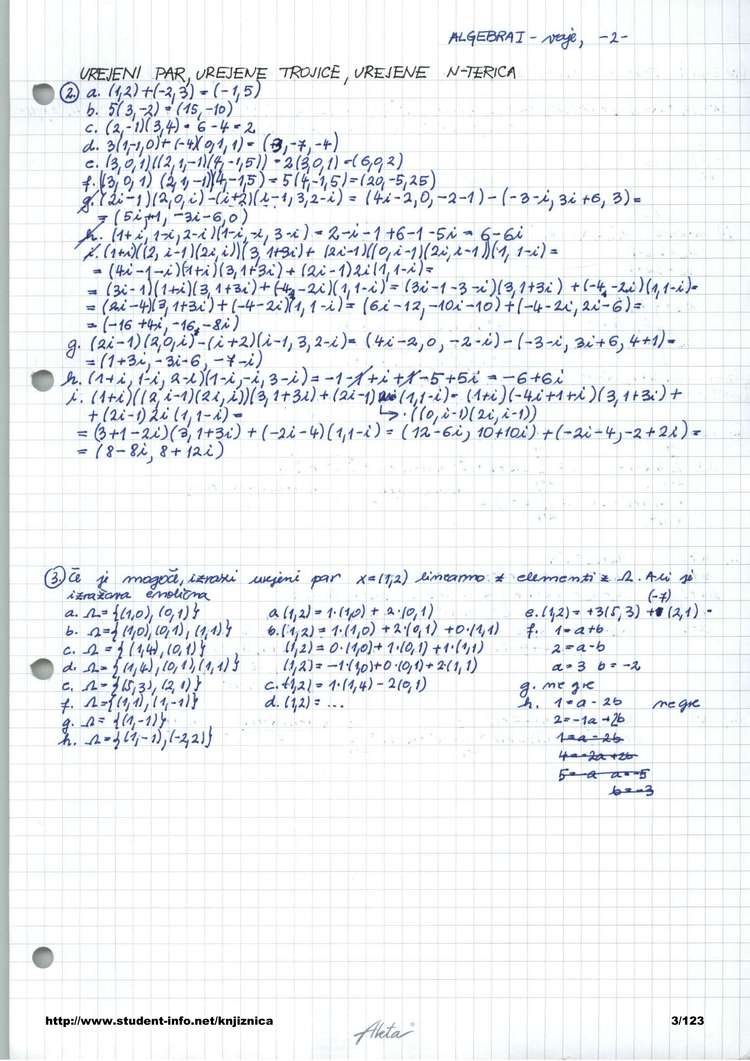 ALGEBRA I - vaje, -2-
UREJENI PAR, UREJENE TROJICE, UREJENE N-TERICA
2. a. (1,2)+(-2,3) = (-1,5)
b. 5(3,-2) = (15,-10)
c. (2,-1)(3,4) = 6-4 = 2
d. 3(1,-1,0)+(-4)(0,1,1) = (3,-7,-4)
e. (3,0,1)((2,1,-1)(4,-1,5)) = 2(3,0,1) = (6,0,2)
f. ((3,0,1)(2,1,-1))(4,-1,5) = 5(4,-1,5) = (20,-5,25)
g. (2i-1)(2,0,i)-(i+2)(i-1,3,2-i) = (4i-2,0,-2-i)-(-3-i,3i+6,3) =
= (5i+1,-3i-6,0)
h. (1+i,1-i,2-i)(1-i,-i,3-i) = 2-i-1+6-1-5i = 6-6i
i. (1+i)((2,i-1)(2i,i))(3,1+3i)+(2i-1)((0,i-1)(2i,i-1))(1,1-i) =
= (4i-1-i)(1+i)(3,1+3i)+(2i-1)2i(1,1-i) =
= (3i-1)(1+i)(3,1+3i)+(-4-2i)(1,1-i) = (3i-1-3-i)(3,1+3i)+(-4-2i)(1,1-i) =
= (2i-4)(3,1+3i)+(-4-2i)(1,1-i) = (6i-12,-10i-10)+(-4-2i,2i-6) =
= (-16+4i,-16-8i)
g. (2i-1)(2,0,i)-(i+2)(i-1,3,2-i) = (4i-2,0,-2-i)-(-3-i,3i+6,4+1) =
= (1+3i,-3i-6,-7-i)
h. (1+i,1-i,2-i)(1-i,-i,3-i) = -1-1+i+1-5+5i = -6+6i
i. (1+i)((2,i-1)(2i,i))(3,1+3i)+(2i-1)(1,1-i) = (1+i)(-4i+1+i)(3,1+3i)+
+(2i-1)2i(1,1-i) = ↳ ·((0,i-1)(2i,i-1))
= (3+1-2i)(3,1+3i)+(-2i-4)(1,1-i) = (12-6i,10+10i)+(-2i-4,-2+2i) =
= (8-8i,8+12i)
3. Če je mogoče, izrazi urejeni par x=(1,2) linearno z elementi z Ω. Ali je
izražava enolična
a. Ω={(1,0),(0,1)} a.(1,2) = 1·(1,0)+2·(0,1) e.(1,2) = +3(5,3)+(-7)(2,1)
b. Ω={(1,0),(0,1),(1,1)} b.(1,2) = 1·(1,0)+2·(0,1)+0·(1,1) f. 1=a+b
c. Ω={(1,4),(0,1)} (1,2) = 0·(1,0)+1·(0,1)+1·(1,1) 2=a-b
d. Ω={(1,4),(0,1),(1,1)} (1,2) = -1·(1,0)+0·(0,1)+2·(1,1) a=3 b=-2
e. Ω={(5,3),(2,1)} c.(1,2) = 1·(1,4)-2(0,1) g. ne gre
f. Ω={(1,1),(1,-1)} d.(1,2) = ... h. 1=a-2b ne gre
g. Ω={(1,-1)} 2=-1a+2b
h. Ω={(1,-1),(-2,2)} 1=a-2b
4=-2a+2b
5=-a a=-5
b=-3
http://www.student-info.net/knjiznica
Akta
3/123